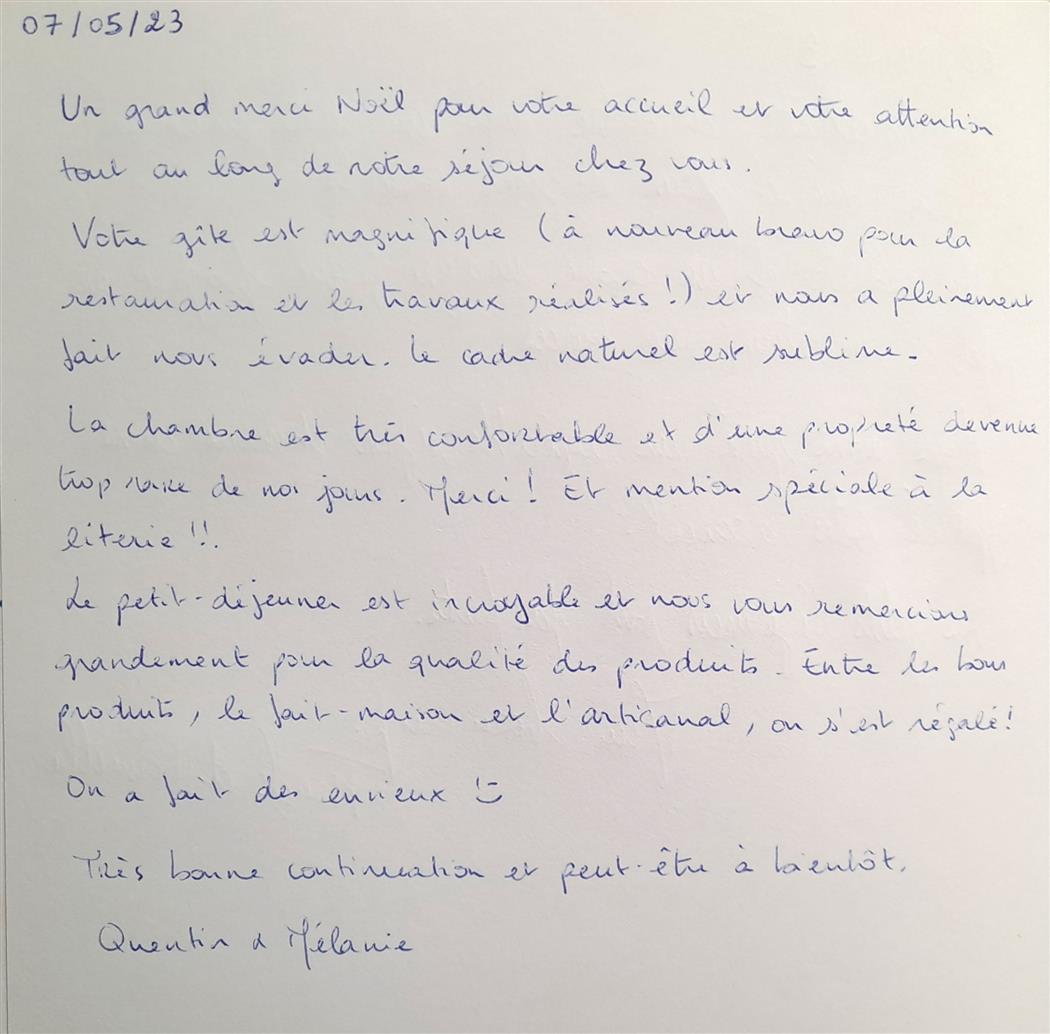 07/05/23
Un grand merci Noël pour votre accueil et votre attention
tout au long de notre séjour chez vous.
Votre gîte est magnifique (à nouveau bravo pour la
restauration et les travaux réalisés !) et nous a pleinement
fait nous évader. Le cadre naturel est sublime.
La chambre est très confortable et d'une propreté devenue
trop rare de nos jours. Merci ! Et mention spéciale à la
literie !!.
Le petit-déjeuner est incroyable et nous vous remercions
grandement pour la qualité des produits. Entre les bons
produits, le fait-maison et l'artisanal, on s'est régalé!
On a fait des envieux :)
Très bonne continuation et peut-être à bientôt.
Quentin & Mélanie